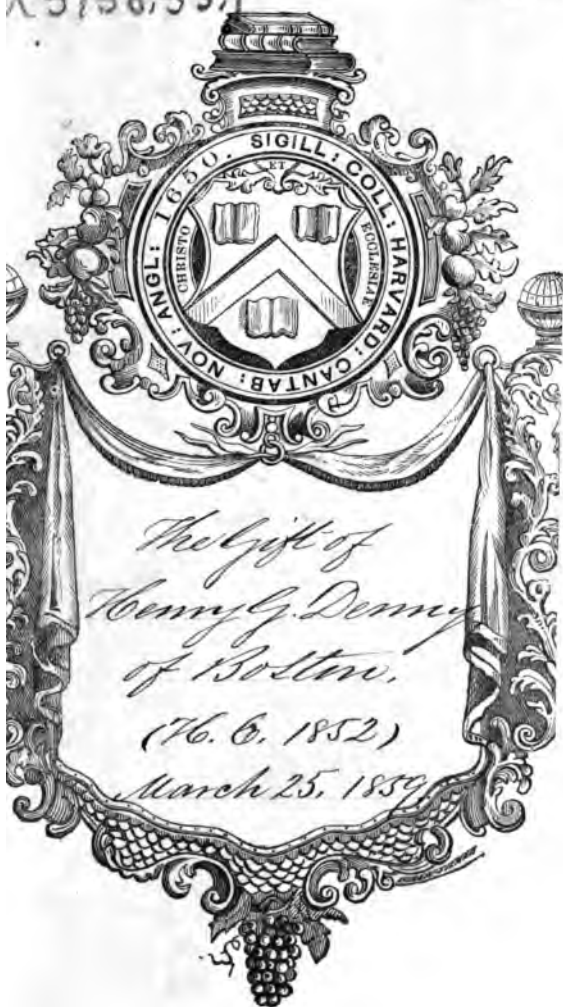 SIGILL: COLL: HARVARD: CANTAB: NOV: ANGL: 1650.
ET
CHRISTO
ECCLESIAE
The Gift of
Henry G. Denny
of Boston,
(H. C. 1852)
March 25, 1859.